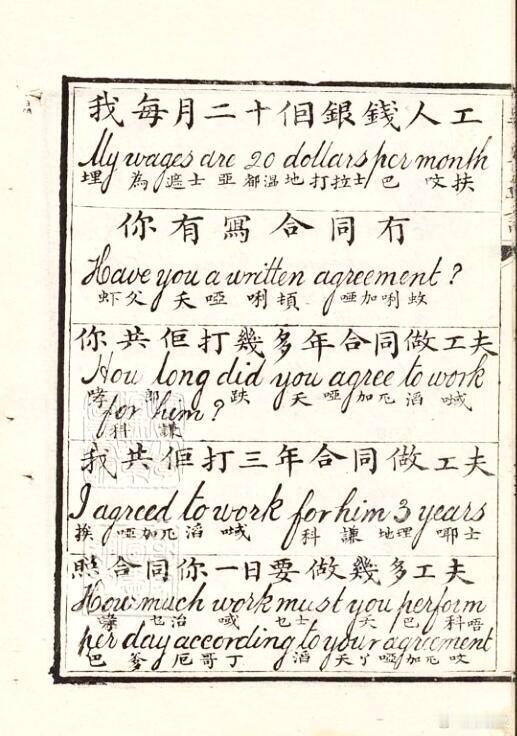 我每月二十個銀錢人工
My wages are 20 dollars per month
埋 為 遮士 亞 都温地 打拉士 巴 呅扶
你有寫合同冇
Have you a written agreement?
虾父 夭 啞 唎頓 啞加唎蚊
你共佢打幾多年合同做工夫
How long did you agree to work
郎 跌 夭 啞加 滔 喊
for him?
科 謙
我共佢打三年合同做工夫
I agreed to work for him 3 years
挨 啞加 滔 喊 科 謙 地理 耶士
照合同你一日要做幾多工夫
How much work must you perform
乜治 喊 乜士 夭 巴科唔
per day according to your agreement
巴 爹 厄哥丁 滔 夭 啞加 呅